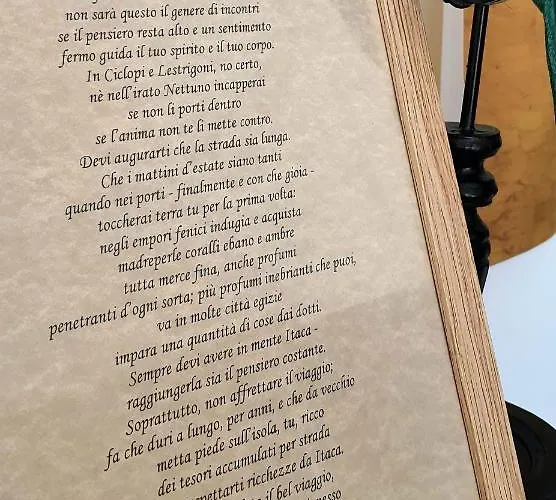 non sarà questo il genere di incontri
se il pensiero resta alto e un sentimento
fermo guida il tuo spirito e il tuo corpo.
In Ciclopi e Lestrigoni, no certo,
nè nell'irato Nettuno incapperai
se non li porti dentro
se l'anima non te li mette contro.
Devi augurarti che la strada sia lunga.
Che i mattini d'estate siano tanti
quando nei porti - finalmente e con che gioia -
toccherai terra tu per la prima volta:
negli empori fenici indugia e acquista
madreperle coralli ebano e ambre
tutta merce fina, anche profumi
penetranti d'ogni sorta; più profumi inebrianti che puoi,
va in molte città egizie
impara una quantità di cose dai dotti.
Sempre devi avere in mente Itaca -
raggiungerla sia il pensiero costante.
Soprattutto, non affrettare il viaggio;
fa che duri a lungo, per anni, e che da vecchio
metta piede sull'isola, tu, ricco
dei tesori accumulati per strada
aspettarti ricchezze da Itaca.
il bel viaggio,